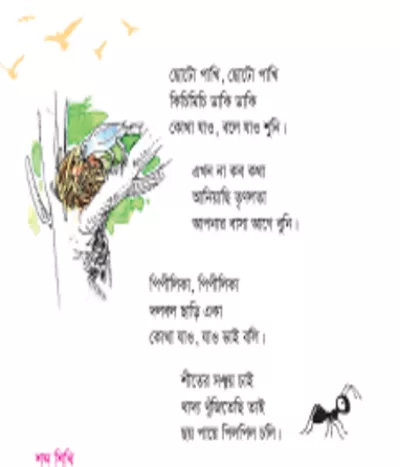 ছোটো পাখি, ছোটো পাখি
কিচিমিচি ডাকি ডাকি
কোথা যাও, বলে যাও শুনি।
এখন না কব কথা
আনিয়াছি তৃণলতা
আপনার বাসা আগে বুনি।
পিপীলিকা, পিপীলিকা
দলবল ছাড়ি একা
কোথা যাও, যাও ভাই বলি।
শীতের সঞ্চয় চাই
খাদ্য খুঁজিতেছি তাই
ছয় পায়ে পিলপিল চলি।
শব্দ শিখি